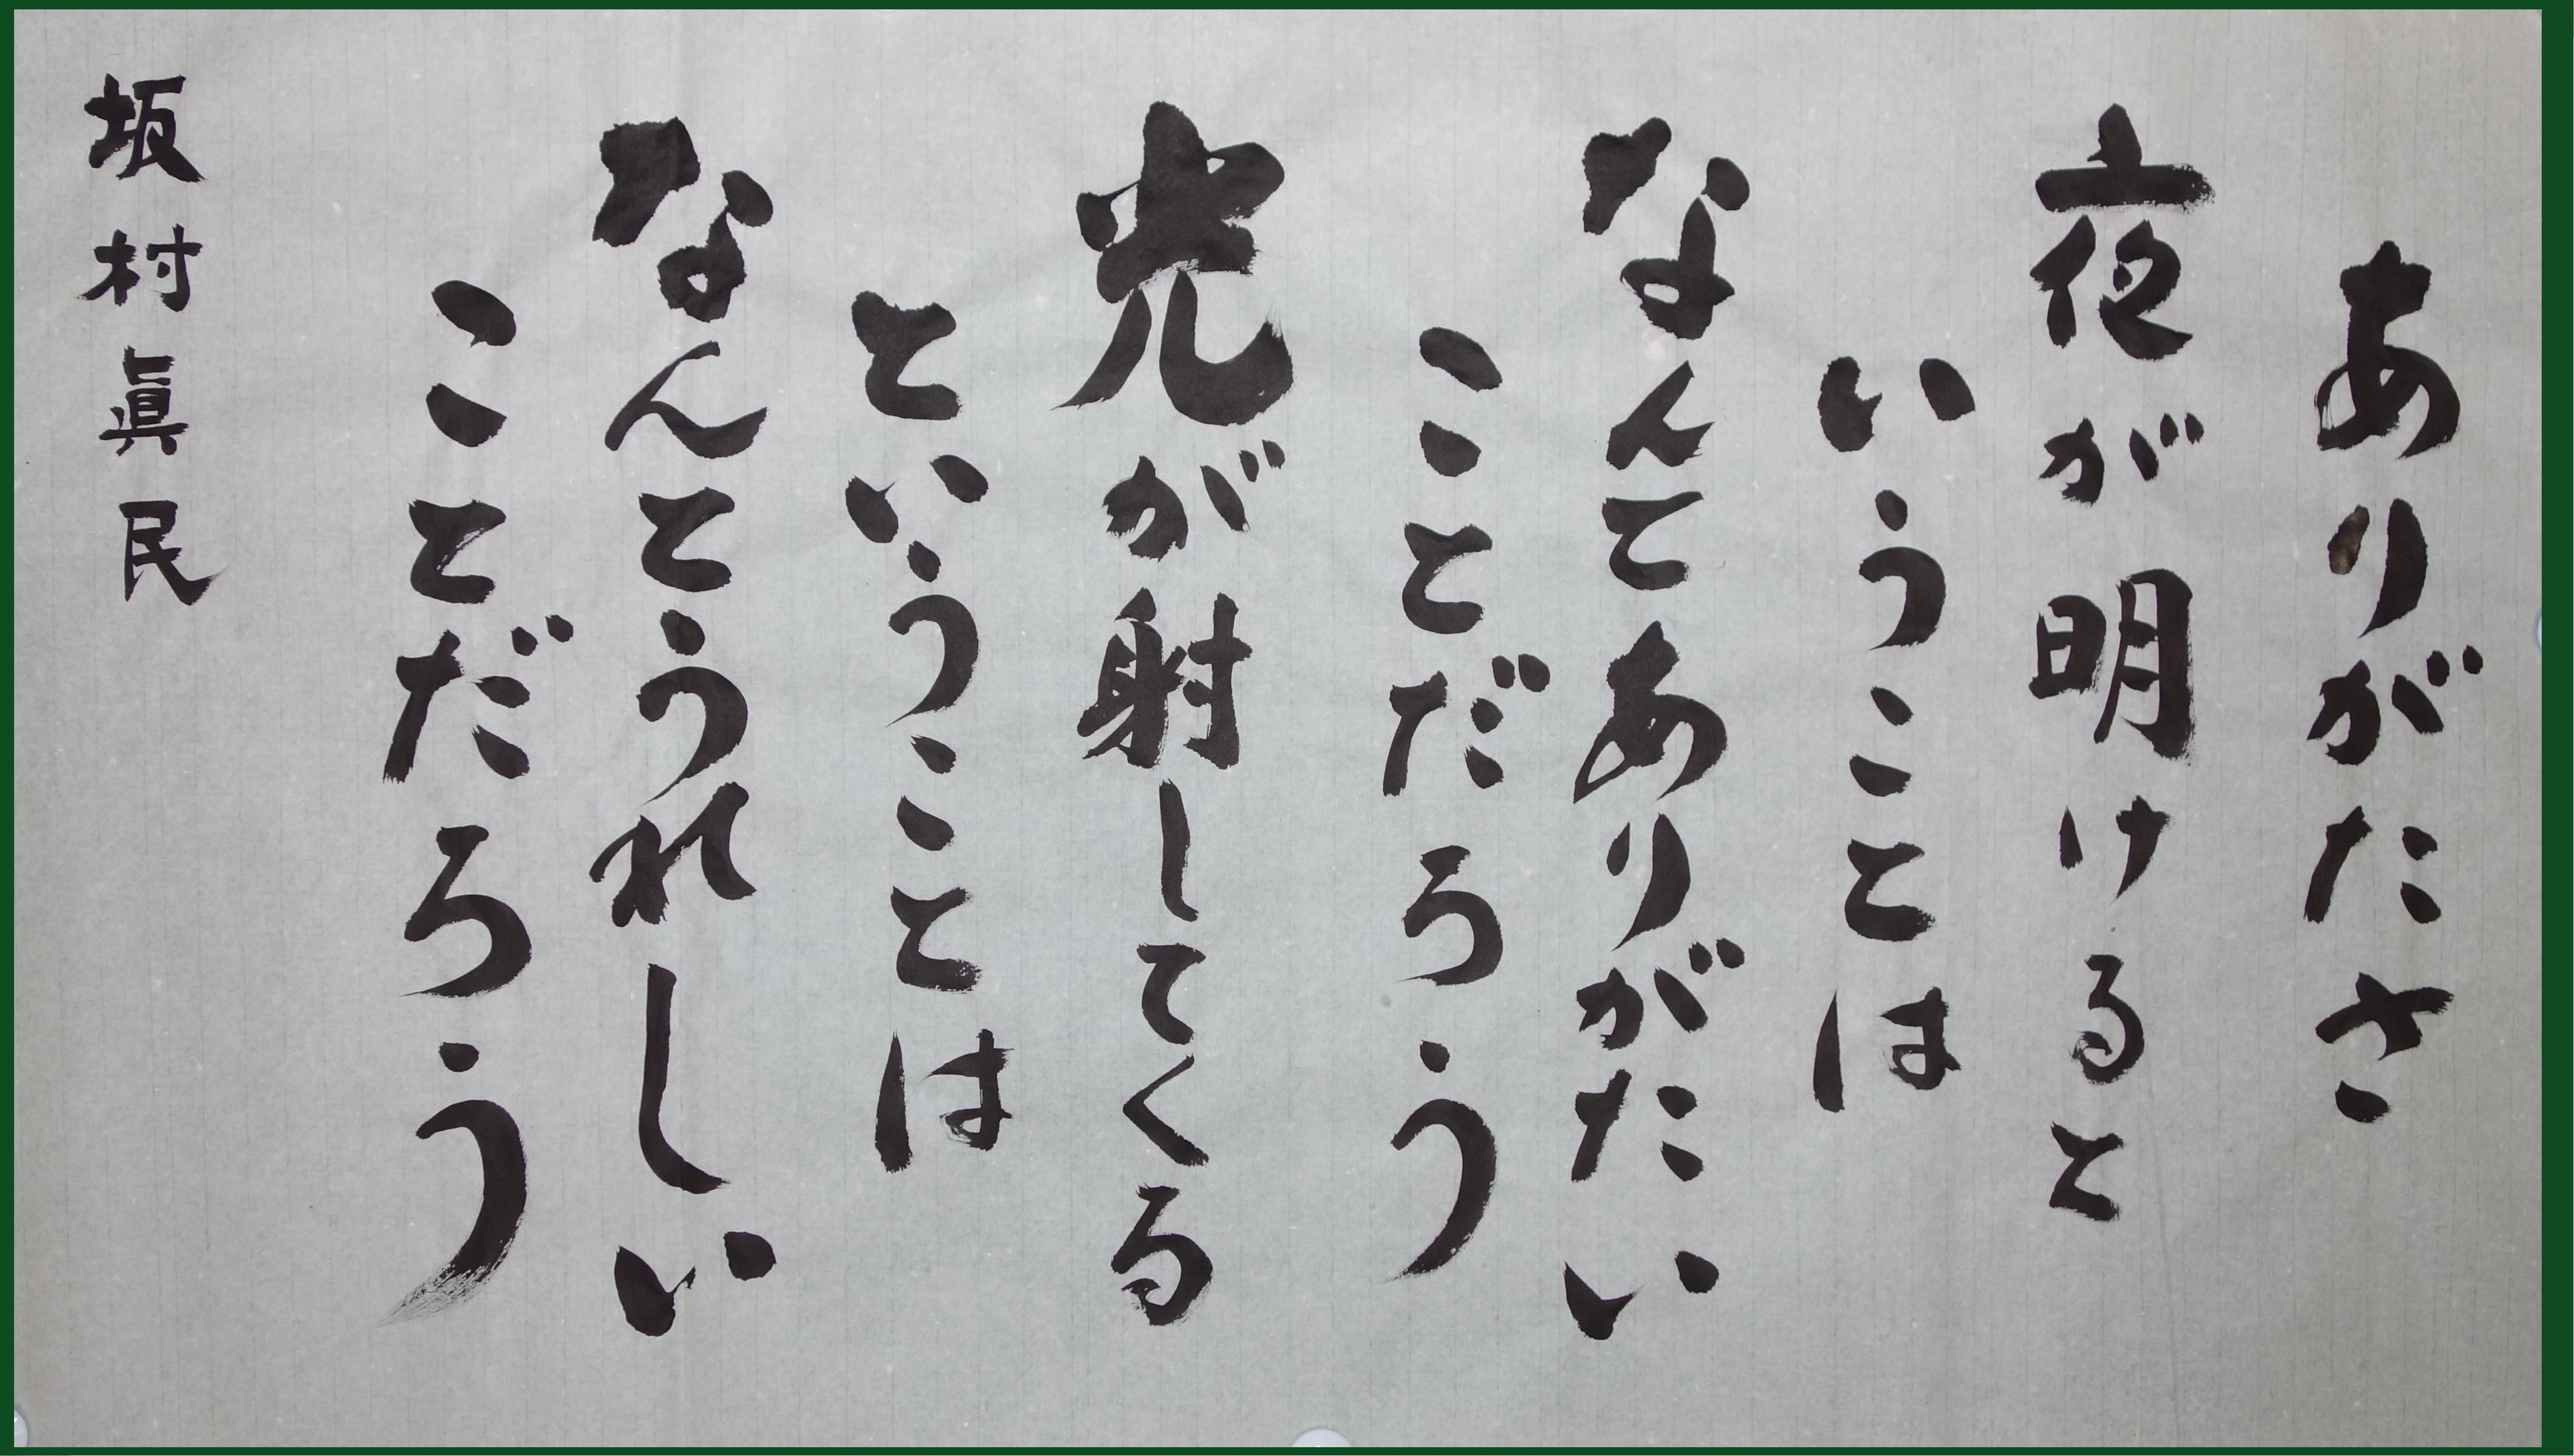 ありがたさ
夜が明けると
いうことは
なんてありがたい
ことだろう
光が射してくる
ということは
なんとうれしい
ことだろう
坂村眞民